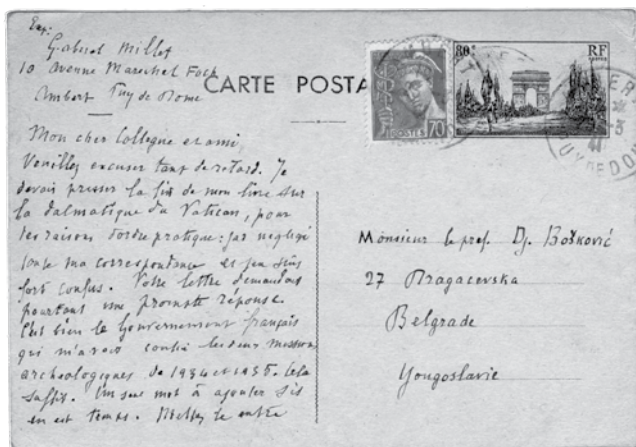 Exp:
Gabriel Millet
10 Avenue Maréchal Foch
Ambert Puy de Dôme
CARTE POSTA
80c
RF
POSTES 70c
41
UY DE DO
Mon cher Collègue et ami,
Veuillez excuser tant de retard. Je
devais presser la fin de mon livre sur
la dalmatique du Vatican, pour
des raisons d'ordre pratique: j'ai négligé
toute ma correspondance et j'en suis
fort confus. Votre lettre demandait
pourtant une prompte réponse.
C'est bien le Gouvernement français
qui m'avait confié les deux missions
archéologiques de 1934 et 1935. Cela
suffit. Un seul mot à ajouter s'il
en est temps. Millet le
Monsieur le prof. Dj. Bošković
27 Dragacevska
Belgrade
Yougoslavie